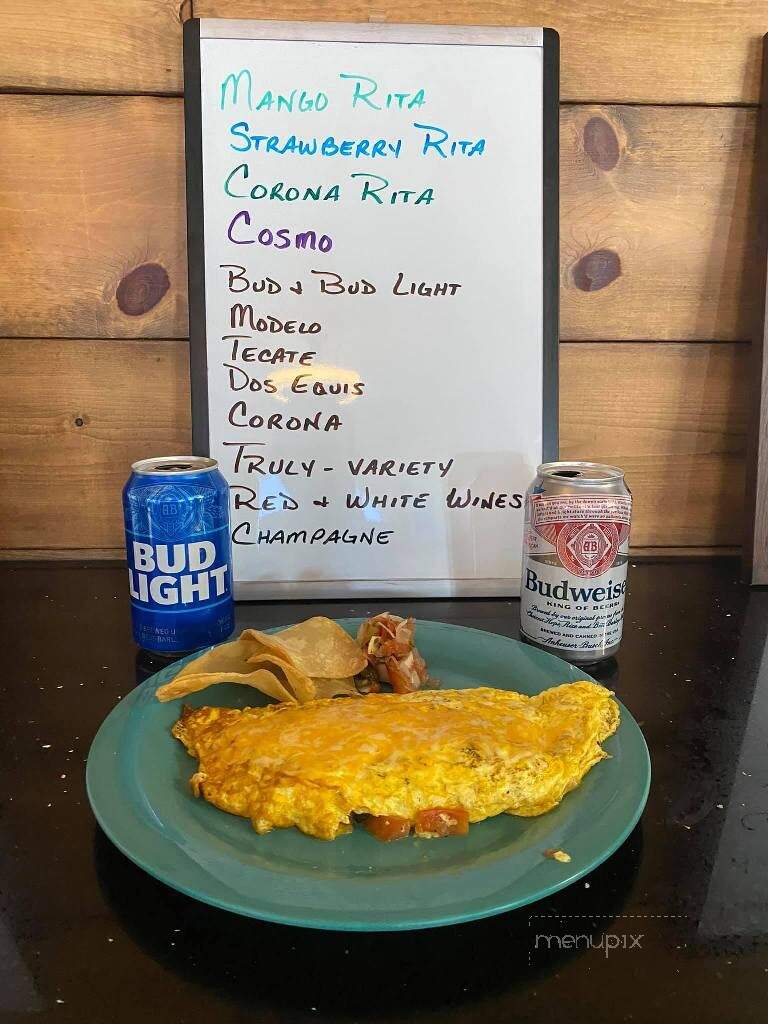 Mango Rita
Strawberry Rita
Corona Rita
Cosmo
Bud & Bud Light
Modelo
Tecate
Dos Equis
Corona
Truly - variety
Red & White Wines
Champagne
BUD
LIGHT
Budweise
KING OF BEERS
BREWED AND CANNED
Anheuser-Busch
menupix